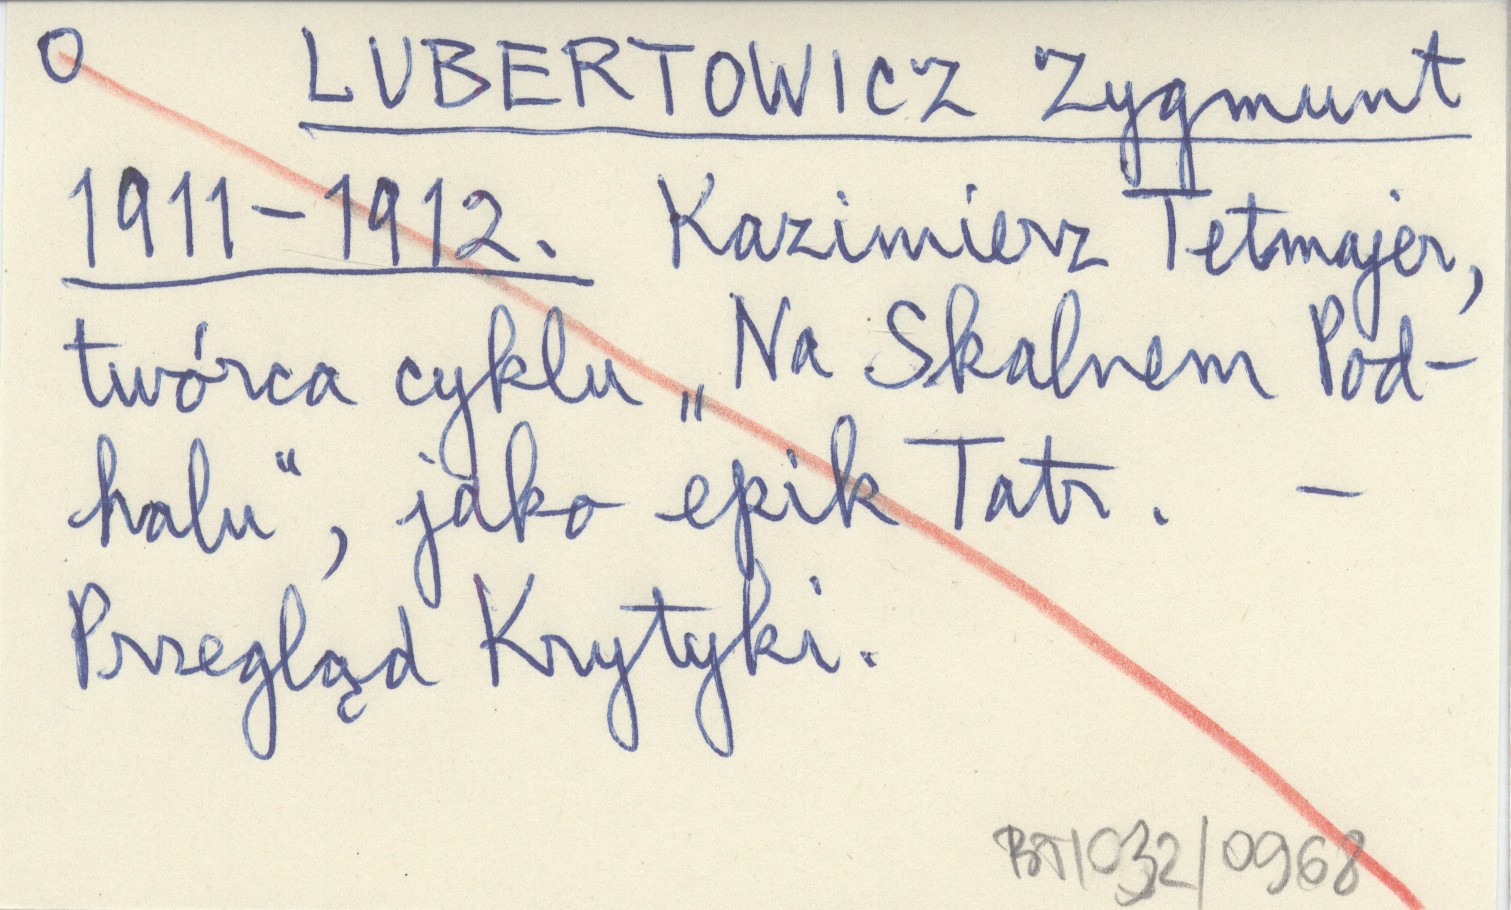 O LUBERTOWICZ Zygmunt
1911-1912. Kazimierz Tetmajer,
twórca cyklu „Na Skalnem Pod-
halu“, jako epik Tatr. —
Przegląd Krytyki.
BT/032/0968